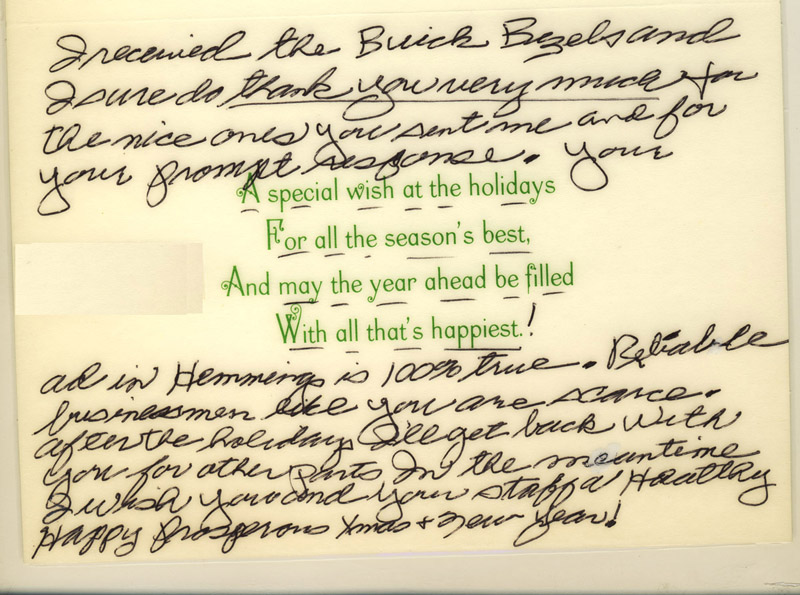 I received the Buick Bezels and
I sure do thank you very much for
the nice ones you sent me and for
your prompt response. Your
A special wish at the holidays
For all the season's best,
And may the year ahead be filled
With all that's happiest.!
ad in Hemmings is 100% true. Reliable
businessmen like you are scarce.
after the holidays I'll get back with
you for other parts In the meantime
I wish you and your staff a Healthy
Happy Prosperous Xmas & New Year!